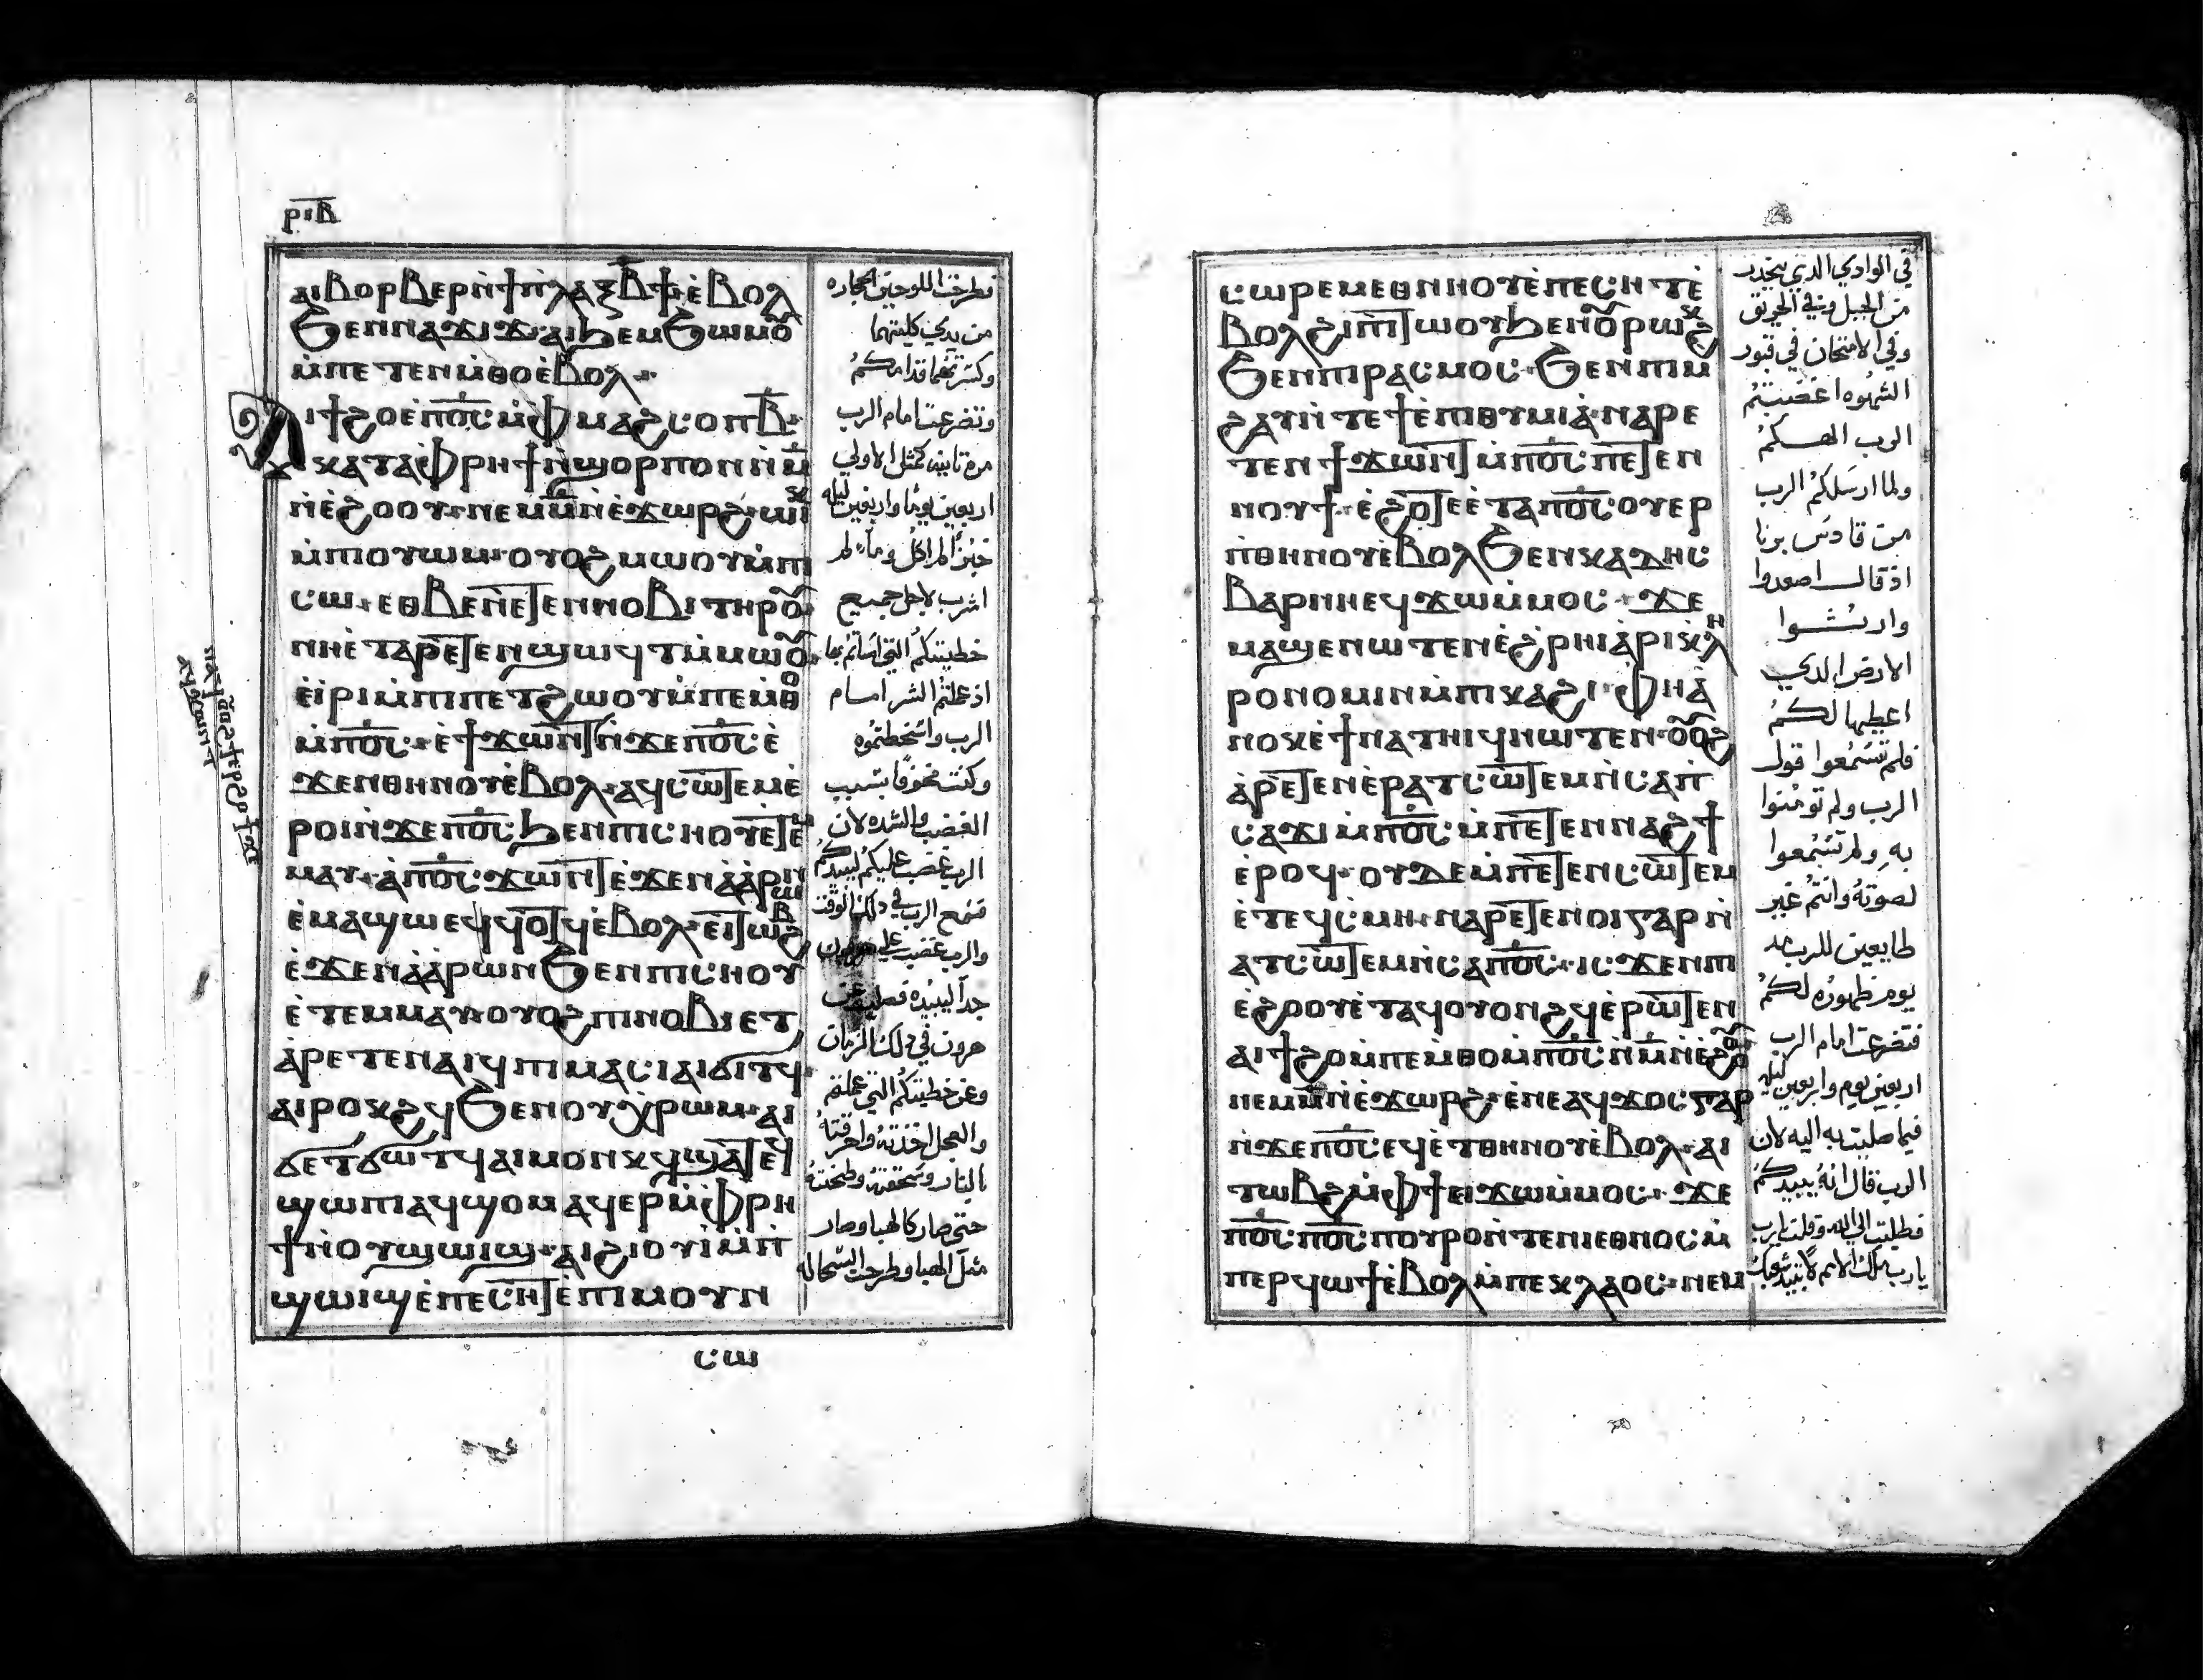 ⲣⲓⲃ
ⲁⲓⲃⲟⲣⲃⲉⲣ ⲛ̀ϯⲡⲗⲁⲝ ⲃ̅ϯ ⲉ̀ⲃⲟⲗ
ϧⲉⲛ ⲛⲁϫⲓϫ ⲁⲓϧⲉⲙϧⲱⲙⲟ̅ⲩ
ⲙ̀ⲡⲉⲧⲉⲛⲙ̀ⲑⲟ ⲉ̀ⲃⲟⲗ
ⲁⲓϯϩⲟ ⲉ̀ⲡⲟ̅ⲥ̅ ⲙ̀ⲫⲙⲁϩⲥⲟⲡ ⲃ̅
ⲕⲁⲧⲁⲫⲣⲏϯ ⲛ̀ϣⲟⲣⲡ ⲟⲛ ⲛ̀ⲙ̅
ⲛ̀ⲉ̀ϩⲟⲟⲩ ⲛⲉⲙ ⲙ̅ ⲛ̀ⲉ̀ϫⲱⲣϩ ⲱⲓⲕ
ⲙ̀ⲡⲓⲟⲩⲱⲙ ⲟⲩⲟϩ ⲙⲱⲟⲩ ⲙ̀ⲡⲓ
ⲥⲱ ⲉⲑⲃⲉ ⲛⲉⲧⲉⲛⲛⲟⲃⲓ ⲧⲏⲣⲟ̅ⲩ
ⲛⲏⲉ̀ⲧⲁⲣⲉⲧⲉⲛϣⲱϥⲧ ⲙ̀ⲙⲱⲟ̅ⲩ
ⲉ̀ⲓ̀ⲣⲓ ⲙ̀ⲡⲓⲡⲉⲧϩⲱⲟⲩ ⲙ̀ⲡⲉⲙ̀ⲑⲟ
ⲙ̀ⲡⲟ̅ⲥ̅ ⲉ̀ϯϫⲱⲛⲧ ⲛ̀ϫⲉⲡⲟ̅ⲥ̅ ⲉ̀
ϫⲉⲛⲑⲏⲛⲟⲩ ⲉ̀ⲃⲟⲗ ⲁϥⲥⲱⲧⲉⲙ ⲉ̀
ⲣⲟⲓ ⲛ̀ϫⲉⲡⲟ̅ⲥ̅ ϧⲉⲛ ⲡⲓⲥⲏⲟⲩ ⲉⲧⲉⲙ̀
ⲙⲁⲩ ⲁ̀ⲡⲟ̅ⲥ̅ ϫⲱⲛⲧ ⲉ̀ϫⲉⲛ ⲁ̀ⲁ̀ⲣⲱⲛ
ⲉ̀ⲙⲁϣⲱ ⲉϥϥⲟⲧϥ ⲉ̀ⲃⲟⲗ ⲉⲓⲧⲱⲃϩ
ⲉ̀ϫⲉⲛ ⲁ̀ⲁ̀ⲣⲱⲛ ϧⲉⲛ ⲡⲓⲥⲏⲟⲩ
ⲉ̀ⲧⲉⲙⲙⲁⲩ ⲟⲩⲟϩ ⲡⲓⲛⲟⲃⲓ ⲉⲧ
ⲁ̀ⲣⲉⲧⲉⲛⲁⲓϥ ⲡⲓⲙⲁⲥⲓ ⲁⲓϭⲓⲧϥ
ⲁⲓⲣⲟⲕϩϥ ϧⲉⲛ ⲟⲩⲭⲣⲱⲙ ⲁⲓ
ϭⲉⲧϭⲱⲧϥ ⲁⲓⲙⲟⲛⲕϥ ϣⲁⲧⲉϥ
ϣⲱⲡⲓ ⲁϥϣⲟⲙ ⲁϥⲉⲣ ⲙ̀ⲫⲣⲏ
ϯ ⲛ̀ⲟⲩϣⲱⲓϣ ⲁⲓϩⲓⲟⲩⲓ ⲙ̀ⲡⲓ
ϣⲱⲓϣ ⲉ̀ⲡⲉⲥⲏⲧ ⲉ̀ⲡⲓⲙⲟⲩⲛ
ⲥⲱ
فطرحت اللوحين الحجاره
من يدي كليتهما
وكسرتهما قدامكم
وتضرعت امام الرب
مره ثانيه كمثل الاولي
اربعين يوما واربعين ليله
خبزا لم اكل وماء لم
اشرب لاجل جميع
خطيتكم التي اساتم بها
اذ عملتم الشر امام
الرب واسخطتموه
وكنت مخوفا بسبب
الغضب والشده لان
الرب غضب عليكم ليبيدكم
فسمع الرب في ذلك الوقت
والرب غضب علي هرون
جدا ليبيده فصليت عن
هرون في ذلك الزمان
وعن خطيتكم التي عملتم
والعجل اخذته واحرقته
بالنار وسحقته وطحنته
حتي صار كالهبا وصار
مثل الهبا وطرحت السحاله
ⲥⲱⲣⲉⲙ ⲉⲑⲛⲏⲟⲩ ⲉ̀ⲡⲉⲥⲏⲧ ⲉ̀
ⲃⲟⲗ ϩⲓ ⲡⲓⲧⲱⲟⲩ ϧⲉⲛ ⲟ̅ⲩⲣⲱⲕϩ
ϧⲉⲛ ⲡⲓⲣⲁⲥⲙⲟⲥ ϧⲉⲛ ⲡⲓⲙ
ϩⲁⲩ ⲛ̀ⲧⲉ ϯⲉ̀ⲡⲓⲑⲩⲙⲓⲁ̀ ⲛⲁⲣⲉ
ⲧⲉⲛϯϫⲱⲛⲧ ⲙ̀ⲡⲟ̅ⲥ̅ ⲡⲉⲧⲉⲛ
ⲛⲟⲩϯ ⲉ̀ϩⲟⲧⲉ ⲉ̀ⲧⲁⲡⲟ̅ⲥ̅ ⲟⲩⲉⲣ
ⲡⲑⲏⲛⲟⲩ ⲉ̀ⲃⲟⲗ ϧⲉⲛ ⲕⲁⲇⲏⲥ
ⲃⲁⲣⲛⲏ ⲉϥϫⲱ ⲙ̀ⲙⲟⲥ ϫⲉ
ⲙⲁϣⲉⲛⲱⲧⲉⲛ ⲉ̀ϩ̀ⲣⲏⲓ ⲁ̀ⲣⲓⲕⲗⲏ
ⲣⲟⲛⲟⲙⲓⲛ ⲙ̀ⲡⲓⲕⲁϩⲓ ⲫⲏ ⲁ̀
ⲛⲟⲕ ⲉ̀ϯⲛⲁⲧⲏⲓϥ ⲛⲱⲧⲉⲛ ⲟ̅ⲟ̅ϩ
ⲁ̀ⲣⲉⲧⲉⲛⲉⲣⲁⲧⲥⲱⲧⲉⲙ ⲛ̀ⲥⲁ ⲡ
ⲥⲁϫⲓ ⲙ̀ⲡⲟ̅ⲥ̅ ⲙ̀ⲡⲉⲧⲉⲛⲛⲁϩϯ
ⲉ̀ⲣⲟϥ ⲟⲩⲇⲉ ⲙ̀ⲡⲉⲧⲉⲛⲥⲱⲧⲉⲙ
ⲉ̀ⲧⲉϥⲥ̀ⲙⲏ ⲛⲁⲣⲉⲧⲉⲛⲟⲓ ⲅⲁⲣ ⲛ̀
ⲁⲧⲥⲱⲧⲉⲙ ⲛ̀ⲥⲁ ⲡⲟ̅ⲥ̅ ⲓⲥϫⲉⲛ ⲡⲓ
ⲉ̀ϩⲟⲟⲩ ⲉ̀ⲧⲁϥⲟⲩⲟⲛϩϥ ⲉ̀ⲣⲱⲧⲉⲛ
ⲁⲓϯϩⲟ ⲙ̀ⲡⲉⲙ̀ⲑⲟ ⲙ̀ⲡⲟ̅ⲥ̅ ⲛ̀ⲙ̅ ⲛ̀ⲉ̀ϩⲟⲟ̅ⲩ
ⲛⲉⲙ ⲙ̅ ⲛ̀ⲉ̀ϫⲱⲣϩ ⲉ̀ⲛⲉⲁϥϫⲟⲥ ⲅⲁⲣ
ⲛ̀ϫⲉⲡⲟ̅ⲥ̅ ⲉϥⲉ̀ⲧ ⲑⲏⲛⲟⲩ ⲉ̀ⲃⲟⲗ ⲁⲓ
ⲧⲱⲃϩ ⲙ̀ⲫϯ ⲉⲓϫⲱ ⲙ̀ⲙⲟⲥ ϫⲉ
ⲡⲟ̅ⲥ̅ ⲡⲟ̅ⲥ̅ ⲡⲟⲩⲣⲟ ⲛ̀ⲧⲉ ⲛⲓⲉⲑⲛⲟⲥ ⲙ̀
ⲡⲉⲣϥⲱϯ ⲉ̀ⲃⲟⲗ ⲙ̀ⲡⲉⲕⲗⲁⲟⲥ ⲛⲉⲙ
في الوادي الذي ينحدر
من الجبل وفي الحريق
وفي الامتحان في قبور
الشهوه اغضبتم
الرب الهكم
ولما ارسلكم الرب
من قادس برنا
اذ قال اصعدوا
وارثوا
الارض الذي
اعطيها لكم
فلم تسمعوا قول
الرب ولم تومنوا
به ولم تسمعوا
لصوته وانتم غير
طايعين للرب مند
يوم ظهوره لكم
فتضرعت امام الرب
اربعين يوم واربعين ليله
فيما صليت به اليه لان
الرب قال انه يبيدكم
فطلبت الي الله وقلت يارب
يارب ملك الامم لا تبيد شعبك